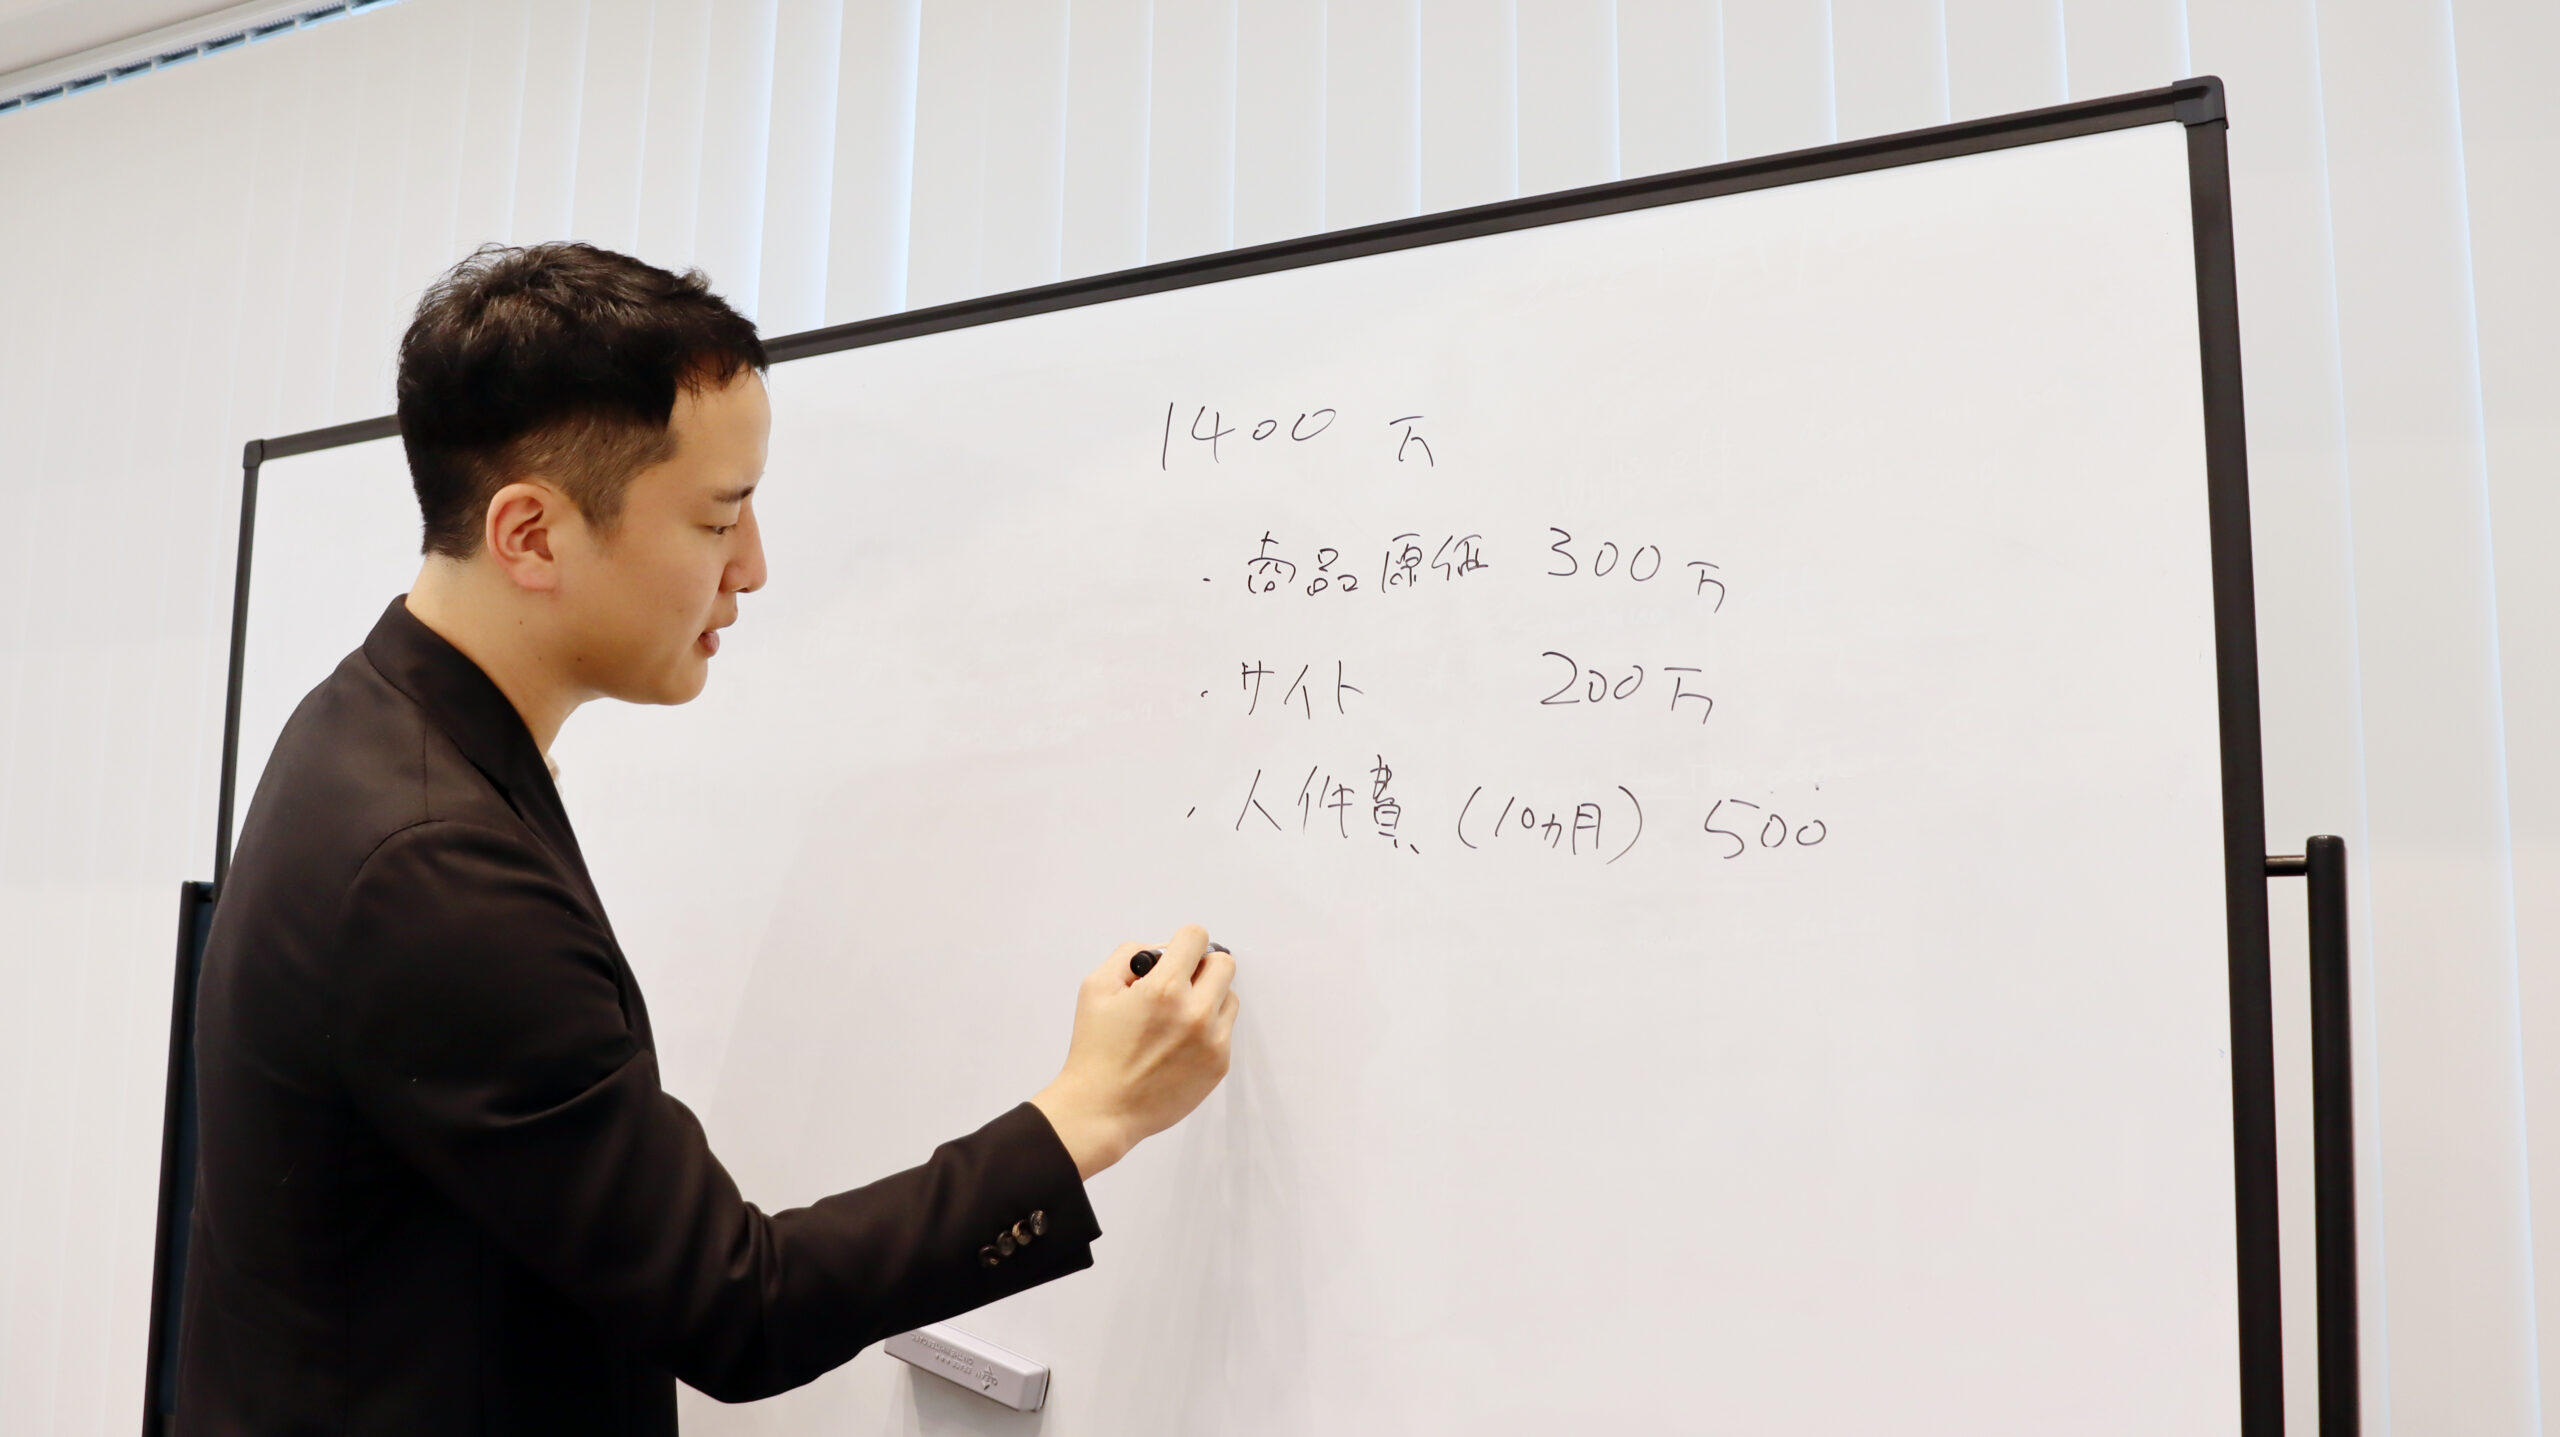 1400 万
・商品原価 300万
・サイト 200万
・人件費 (10ヵ月) 500